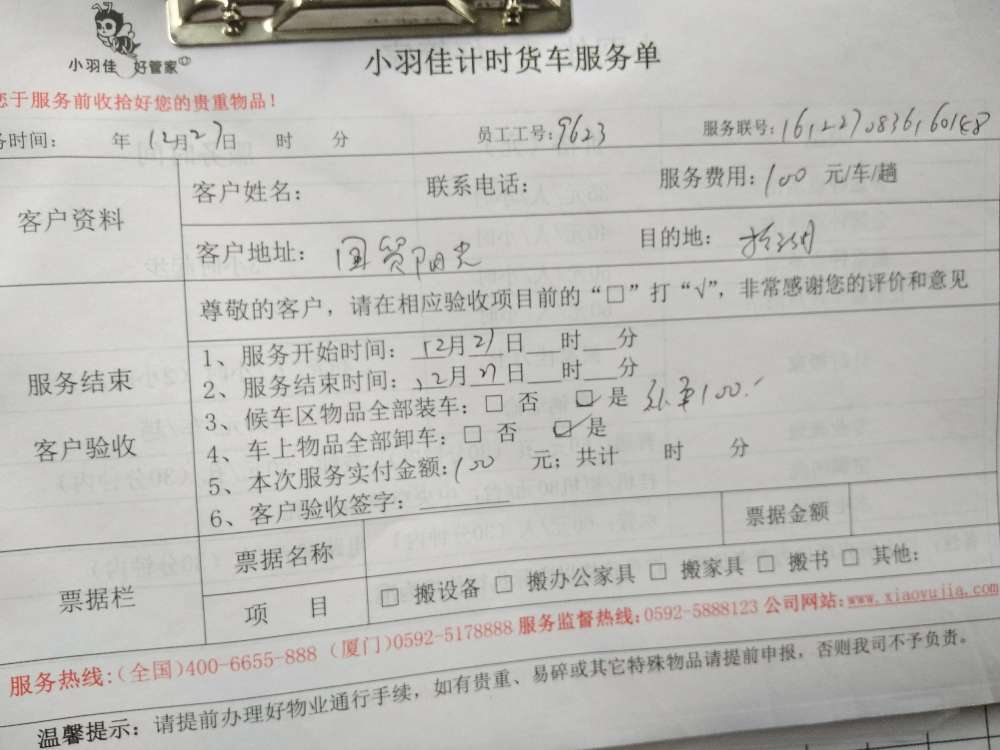 小羽佳 好管家
小羽佳计时货车服务单
您于服务前收拾好您的贵重物品！
务时间： 年12月27日 时 分 员工工号：9623 服务联号：
客户资料
客户姓名： 联系电话： 服务费用：100 元/车/趟
客户地址：国贸阳光 目的地：
尊敬的客户，请在相应验收项目前的“□”打“√”，非常感谢您的评价和意见
服务结束
客户验收
1、服务开始时间：12月27日___时___分
2、服务结束时间：12月27日___时___分
3、候车区物品全部装车：□ 否 ☑ 是 100
4、车上物品全部卸车：□ 否 ☑ 是
5、本次服务实付金额：100 元；共计 时 分
6、客户验收签字：
票据栏
票据名称 票据金额
项 目 □ 搬设备 □ 搬办公家具 □ 搬家具 □ 搬书 □ 其他：
服务热线：(全国)400-6655-888 (厦门)0592-5178888 服务监督热线：0592-5888123 公司网站：www.xiaoyujia.com
温馨提示：请提前办理好物业通行手续，如有贵重、易碎或其它特殊物品请提前申报，否则我司不予负责。